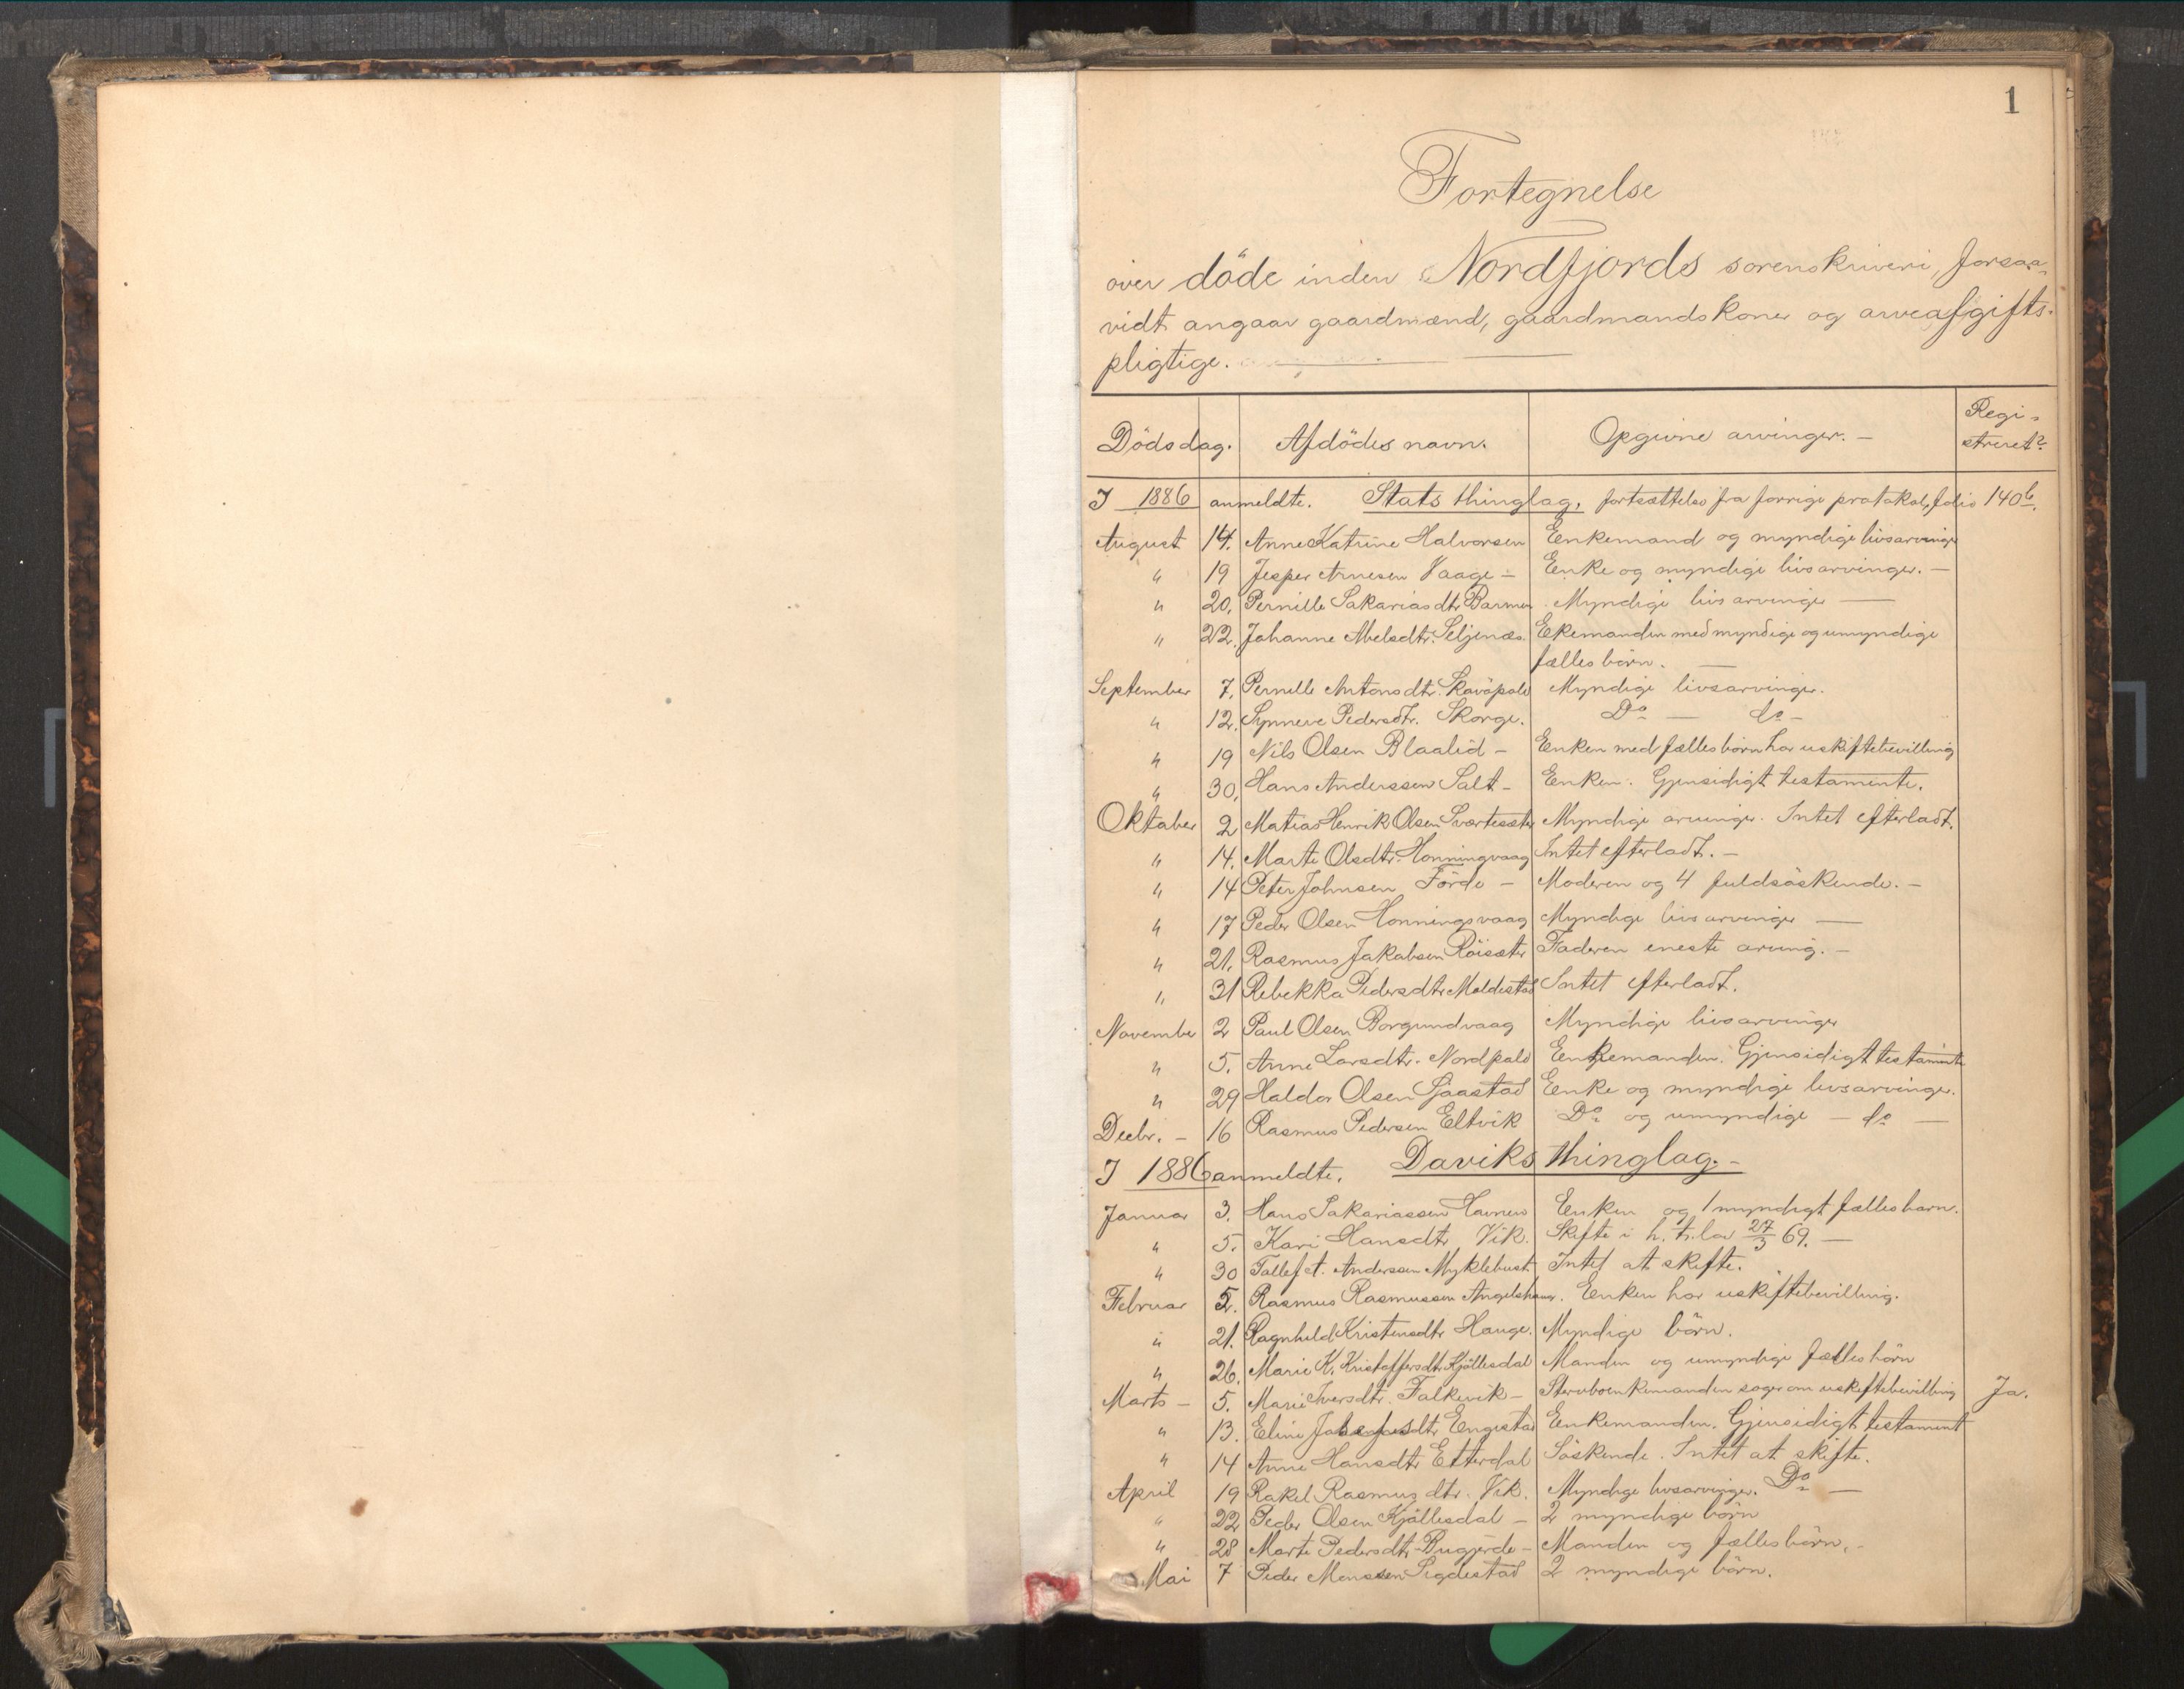 1
Fortegnelse
over döde inden Nordfjords sorenskriveri, forsaa-
vidt angaar gaardmænd, gaardmandskoner og arveafgifts-
pligtige.
Dödsdag. Afdödes navn. Opgivne arvinger. — Regi-
streret?
I 1886 anmeldte. Stats thinglag, fortsættelse fra forrige protokol, folio 140b.
August 14. Anne Katrine Halvorsen Enkemand og myndige livsarvinger
" 19 Jesper Arnesen Vaage — Enke og myndige livsarvinger. —
" 20. Pernille Sakariasdtr Barmen Myndige livsarvinger —
" 22. Johanne Abelsdtr. Seljenæs. Ekemanden med myndige og umyndige
fællesbörn. —
September 7. Pernille Antonsdtr. Myndige livsarvinger.
" 12. Synneve Pedersdtr. Skorge. Do — do —
" 19 Nils Olsen Blaalid — Enken med fællesbörn har uskiftebevilling
" 30. Hans Anderssen Salt — Enken. Gjensidigt testamente.
Oktober 2 Matias Henrik Olsen Sværtesæter Myndige arvinger. Intet efterladt.
" 14. Marte Olsdtr. Honningvaag Intet efterladt. —
" 14 Peter Johnsen Förde — Moderen og 4 fuldsöskende. —
" 17 Peder Olsen Honningsvaag Myndige livsarvinger —
" 21. Rasmus Jakobsen Röisæter Faderen eneste arving. —
" 31 Rebekka Pedersdtr Moldestad Intet efterladt.
November 2 Paul Olsen Borgundvaag Myndige livsarvinger
" 5. Anne Larsdtr. Nordpold Enkemanden. Gjensidigt testamente
" 29 Haldor Olsen Sjaastad Enke og myndige livsarvinger.
Decbr. — 16 Rasmus Pedersen Eltvik Do og umyndige — do —
I 1886 anmeldte. Daviks thinglag. —
Januar 3. Hans Sakariassen Havnen Enken og 1 myndigt fællesbarn.
" 5. Kari Hansdtr Vik. Skifte i h. t. lov 27/3 69. —
" 30 Tollef A. Anderssen Myklebust Intet at skifte.
Februar 5. Rasmus Rasmussen Angelshaug. Enken har uskiftebevilling.
" 21. Ragnhild Kristensdtr Hauge. Myndige börn.
" 26. Marie K. Kristoffersdtr Kjöllesdal Manden og umyndige fællesbörn
Marts — 5. Marie Iversdtr. Falkevik — Stervboenkemanden söger om uskiftebevilling Ja.
" 13. Eline Engestad Enkemanden. Gjensidigt testament
" 14 Anne Hansdtr Etterdal Söskende. Intet at skifte.
April 19 Rakel Rasmusdtr. Vik. Myndige livsarvinger. Do —
" 22 Peder Olsen Kjöllesdal — 2 myndige börn
" 28 Marte Pedersdtr. Rugjerde — Manden og fællesbörn. —
Mai 7 Peder Monssen Sigdestad 2 myndige börn.